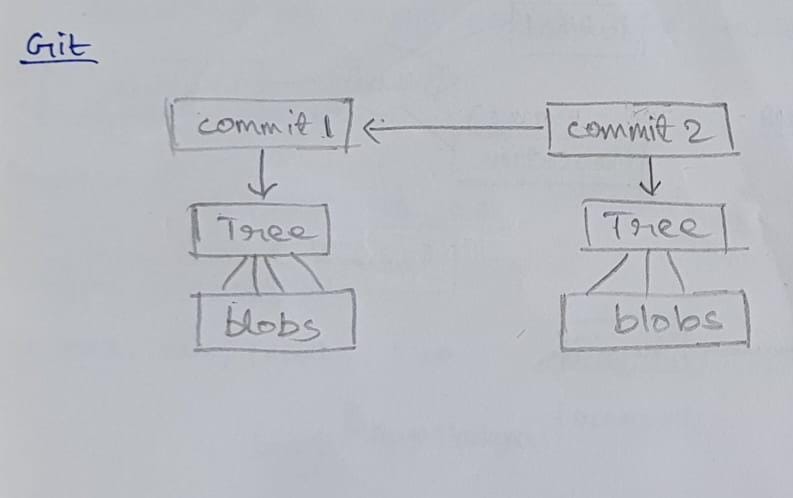 Git
commit 1
commit 2
Tree
Tree
blobs
blobs